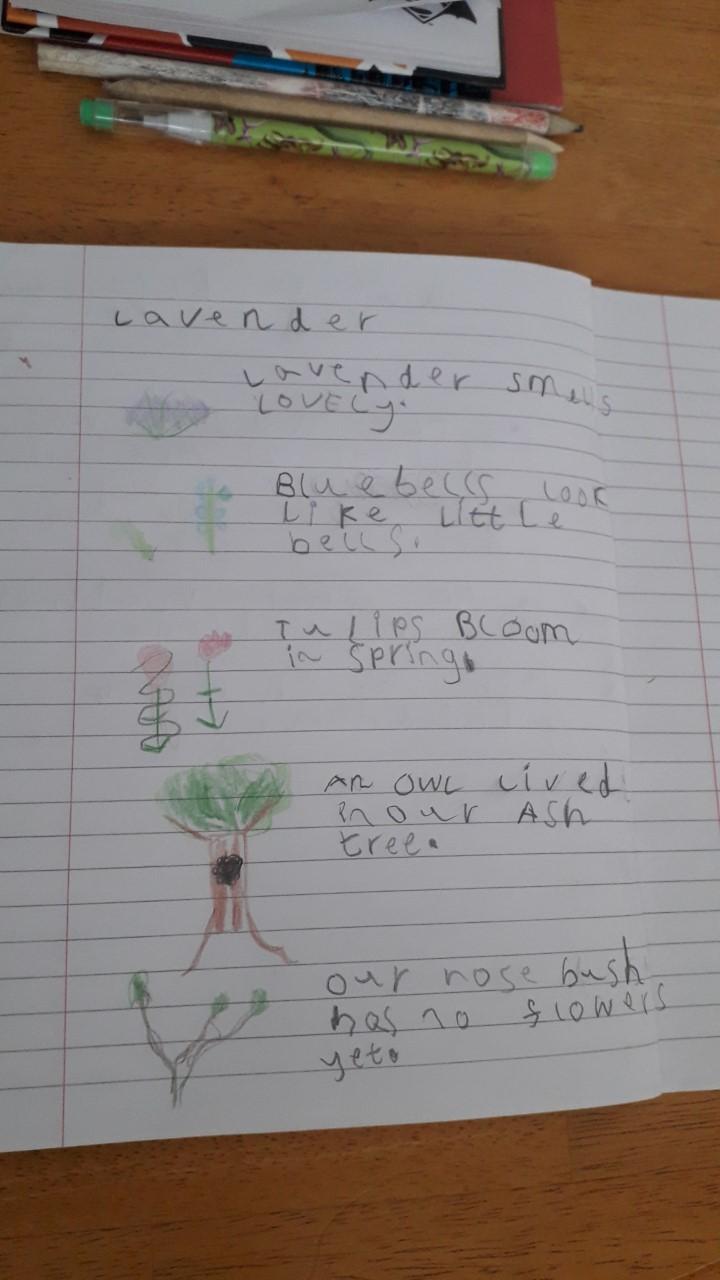 Lavender
Lavender smells
LOVELy.
Bluebells Look
Like Little
bells.
Tulips BLoom
in spring.
An OWL Lived
in our Ash
tree.
our rose bush
has no flowers
yet.